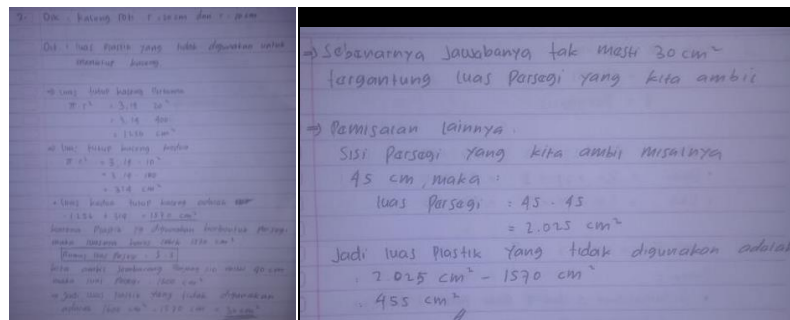 3. Dik : kaleng roti r = 20 cm dan r = 10 cm
Dit : luas plastik yang tidak digunakan untuk
menutup kaleng.
⇒ luas tutup kaleng pertama
π r² = 3,14 20²
= 3,14 400
= 1256 cm²
⇒ luas tutup kaleng kedua
π r² = 3,14 . 10²
= 3,14 100
= 314 cm²
luas kedua tutup kaleng adalah
1256 + 314 = 1570 cm²
karena plastik yg digunakan berbentuk persegi
maka luasnya harus 1570 cm²
Rumus luas persegi = s.s
kita ambil 40 cm
maka luas persegi 1600 cm²
⇒ Jadi luas plastik yang tidak digunakan
adalah 1600 cm² - 1570 cm² = 30 cm²
⇒ Sebenarnya jawabanya tak mesti 30 cm²
tergantung luas Persegi yang kita ambil
⇒ Pemisalan lainnya.
Sisi Persegi yang kita ambil misalnya
45 cm, maka :
luas Persegi = 45 . 45
= 2.025 cm²
Jadi luas Plastik yang tidak digunakan adalah
. 2.025 cm² - 1570 cm²
. 455 cm²